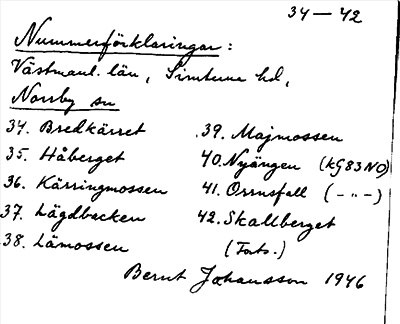 34 — 42
Nummerförklaringar:
Västmanl. län, Simtuna hd,
Norrby sn
34. Bredkärret
35. Håberget
36. Kärringmossen
37. Lägdbacken
38. Lämossen
39. Majmossen
40. Nyängen (kG83NO)
41. Orrnsfall (–"–)
42. Skallberget
(Forts.)
Bernt Johansson 1946